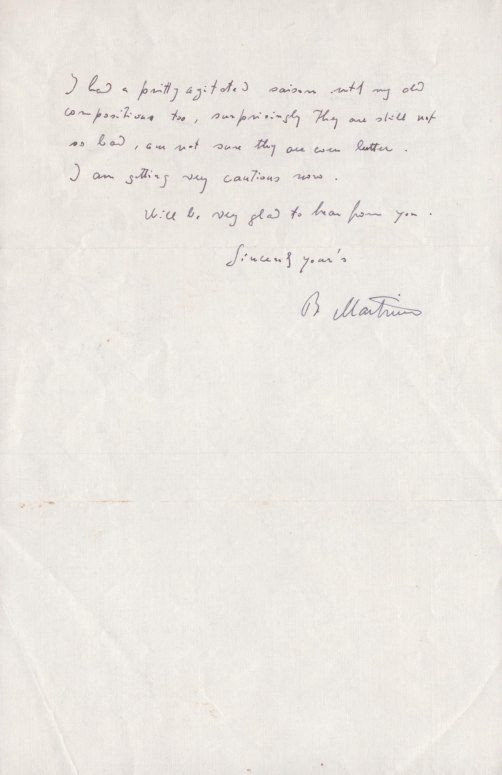 I had a pritty agitated saison with my old
compositions too, surprisingly they are still not
so bad, am not sure they are even better.
I am getting very cautious now.
Will be very glad to hear from you.
Sincerely your's
B Martinu